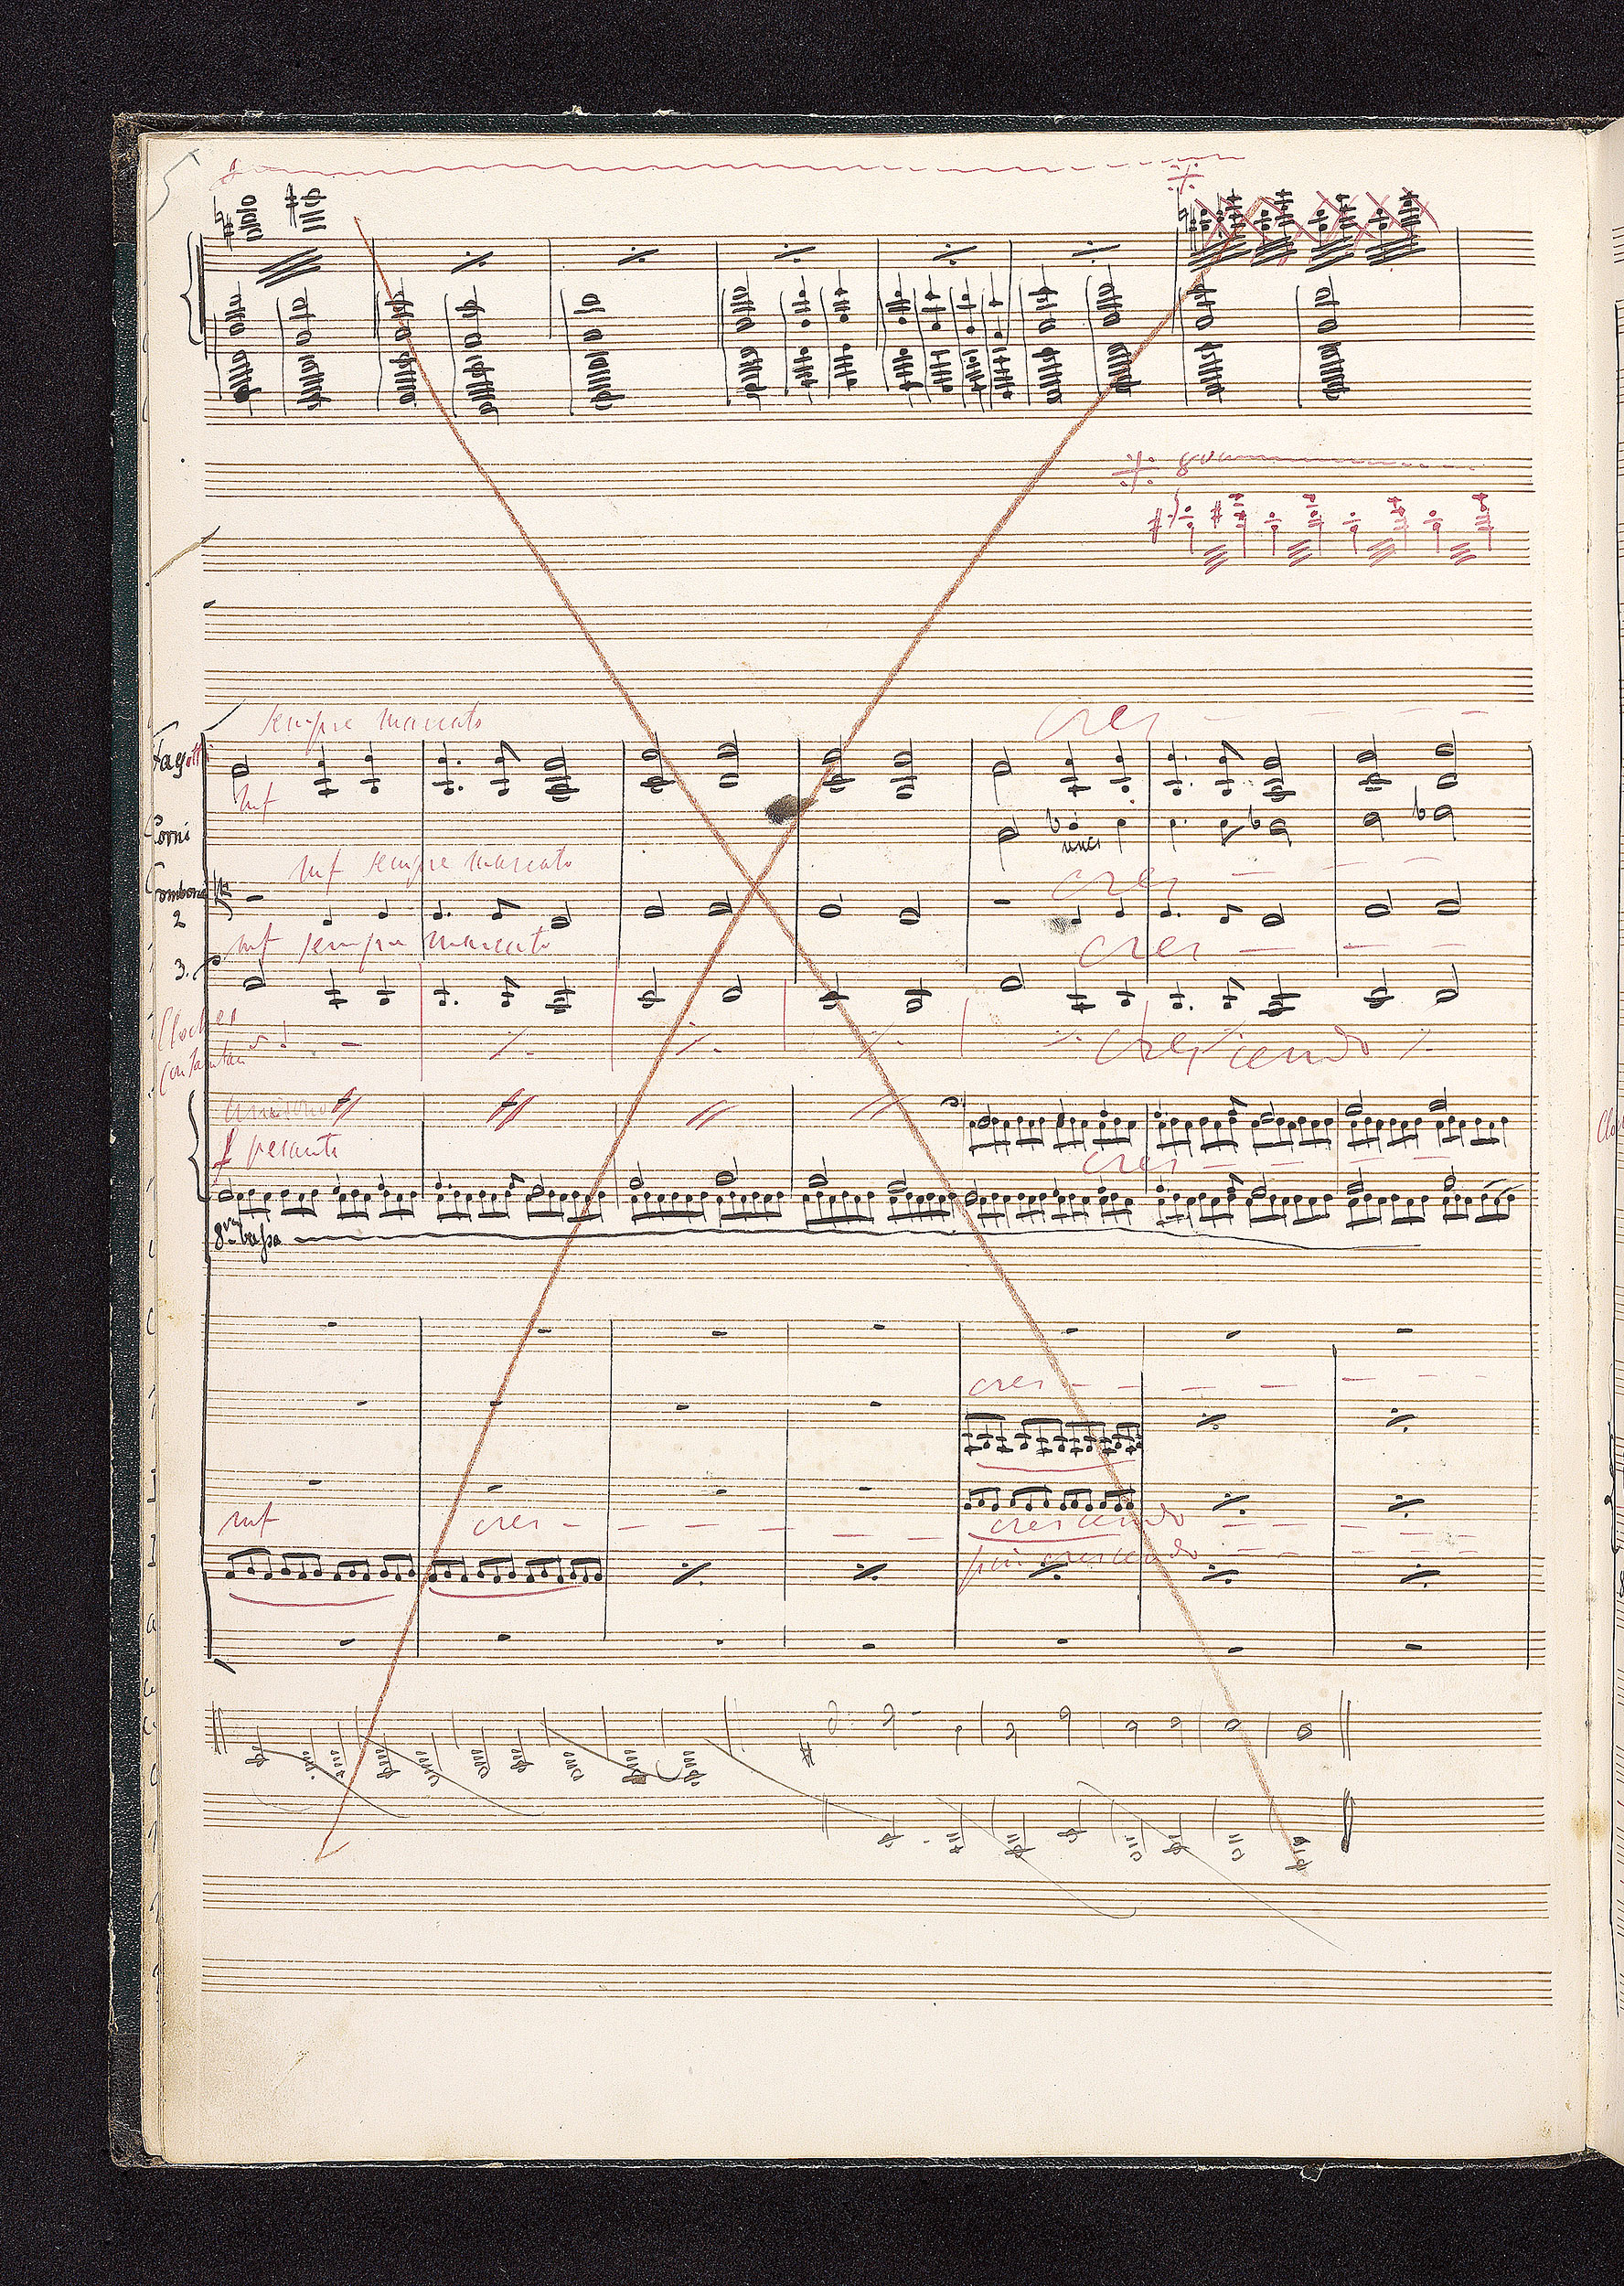 5
8va
sempre marcato
cres
Fagotti
mf
Corni
unis
mf sempre marcato
cres
Tromboni
2
mf sempre marcato
cres
3.
Cloches
crescendo
unisono
f pesante
cres
8va bassa
cres
mf
cres
crescendo
più crescendo